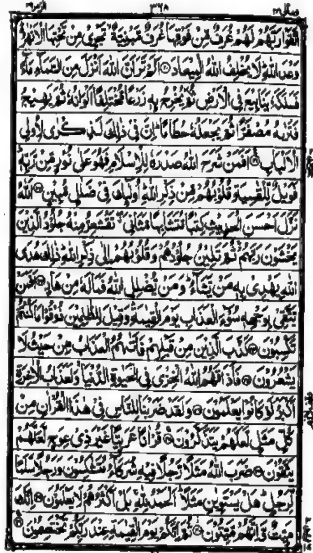 ومالی ٢٣ ٣٦٨ الزمر ٣٩
اتَّقَوْا رَبَّهُمْ لَهُمْ غُرَفٌ مِّنْ فَوْقِهَا غُرَفٌ مَّبْنِيَّةٌ تَجْرِيْ مِنْ تَحْتِهَا الْاَنْهٰرُ
وَعْدَ اللّٰهِ لَا يُخْلِفُ اللّٰهُ الْمِيْعَادَ ۝ اَلَمْ تَرَ اَنَّ اللّٰهَ اَنْزَلَ مِنَ السَّمَآءِ مَآءً
فَسَلَكَهٗ يَنَابِيْعَ فِي الْاَرْضِ ثُمَّ يُخْرِجُ بِهٖ زَرْعًا مُّخْتَلِفًا اَلْوَانُهٗ ثُمَّ يَهِيْجُ
فَتَرٰىهُ مُصْفَرًّا ثُمَّ يَجْعَلُهٗ حُطَامًا اِنَّ فِيْ ذٰلِكَ لَذِكْرٰى لِاُولِي
الْاَلْبَابِ ۝ اَفَمَنْ شَرَحَ اللّٰهُ صَدْرَهٗ لِلْاِسْلَامِ فَهُوَ عَلٰى نُوْرٍ مِّنْ رَّبِّهٖ
فَوَيْلٌ لِّلْقٰسِيَةِ قُلُوْبُهُمْ مِّنْ ذِكْرِ اللّٰهِ اُولٰٓئِكَ فِيْ ضَلٰلٍ مُّبِيْنٍ ۝ اَللّٰهُ
نَزَّلَ اَحْسَنَ الْحَدِيْثِ كِتٰبًا مُّتَشَابِهًا مَّثَانِيَ تَقْشَعِرُّ مِنْهُ جُلُوْدُ الَّذِيْنَ
يَخْشَوْنَ رَبَّهُمْ ثُمَّ تَلِيْنُ جُلُوْدُهُمْ وَقُلُوْبُهُمْ اِلٰى ذِكْرِ اللّٰهِ ذٰلِكَ هُدَى
اللّٰهِ يَهْدِيْ بِهٖ مَنْ يَّشَآءُ وَمَنْ يُّضْلِلِ اللّٰهُ فَمَا لَهٗ مِنْ هَادٍ ۝ اَفَمَنْ
يَّتَّقِيْ بِوَجْهِهٖ سُوْٓءَ الْعَذَابِ يَوْمَ الْقِيٰمَةِ وَقِيْلَ لِلظّٰلِمِيْنَ ذُوْقُوْا مَا كُنْتُمْ
تَكْسِبُوْنَ ۝ كَذَّبَ الَّذِيْنَ مِنْ قَبْلِهِمْ فَاَتٰىهُمُ الْعَذَابُ مِنْ حَيْثُ لَا
يَشْعُرُوْنَ ۝ فَاَذَاقَهُمُ اللّٰهُ الْخِزْيَ فِي الْحَيٰوةِ الدُّنْيَا وَلَعَذَابُ الْاٰخِرَةِ
اَكْبَرُ لَوْ كَانُوْا يَعْلَمُوْنَ ۝ وَلَقَدْ ضَرَبْنَا لِلنَّاسِ فِيْ هٰذَا الْقُرْاٰنِ مِنْ
كُلِّ مَثَلٍ لَّعَلَّهُمْ يَتَذَكَّرُوْنَ ۝ قُرْاٰنًا عَرَبِيًّا غَيْرَ ذِيْ عِوَجٍ لَّعَلَّهُمْ
يَتَّقُوْنَ ۝ ضَرَبَ اللّٰهُ مَثَلًا رَّجُلًا فِيْهِ شُرَكَآءُ مُتَشٰكِسُوْنَ وَرَجُلًا سَلَمًا
لِّرَجُلٍ هَلْ يَسْتَوِيٰنِ مَثَلًا اَلْحَمْدُ لِلّٰهِ بَلْ اَكْثَرُهُمْ لَا يَعْلَمُوْنَ ۝ اِنَّكَ
مَيِّتٌ وَّاِنَّهُمْ مَّيِّتُوْنَ ۝ ثُمَّ اِنَّكُمْ يَوْمَ الْقِيٰمَةِ عِنْدَ رَبِّكُمْ تَخْتَصِمُوْنَ ۝